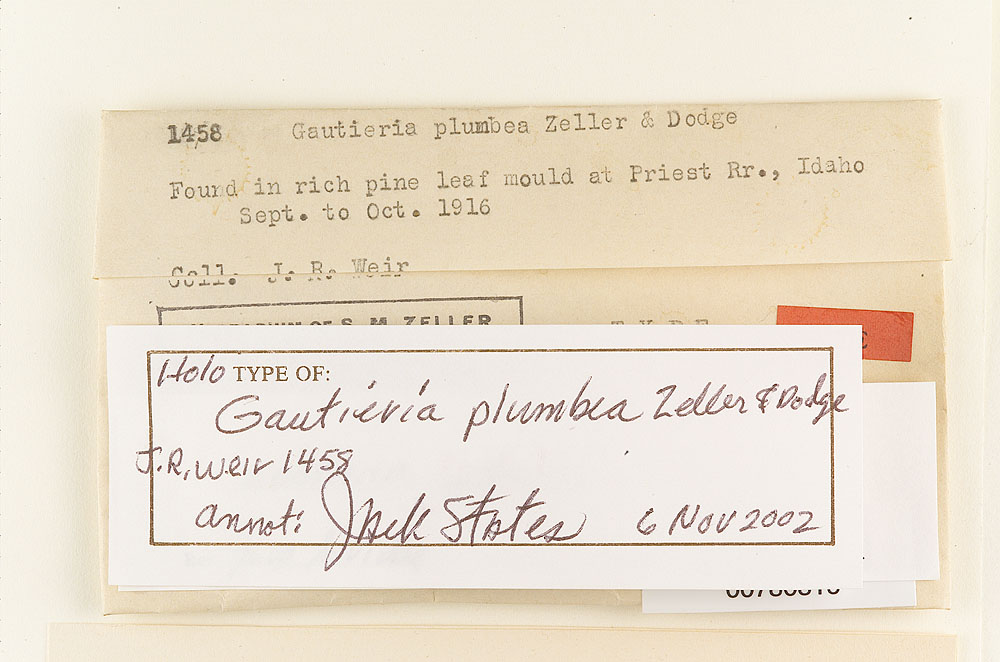 1458 Gautieria plumbea Zeller & Dodge
Found in rich pine leaf mould at Priest Rr., Idaho
Sept. to Oct. 1916
Coll. J. R. Weir
OF S. M. ZELLER
TYPE
Holo TYPE OF:
Gautieria plumbea Zeller & Dodge
J.R. Weir 1458
annot: Jack States 6 Nov 2002